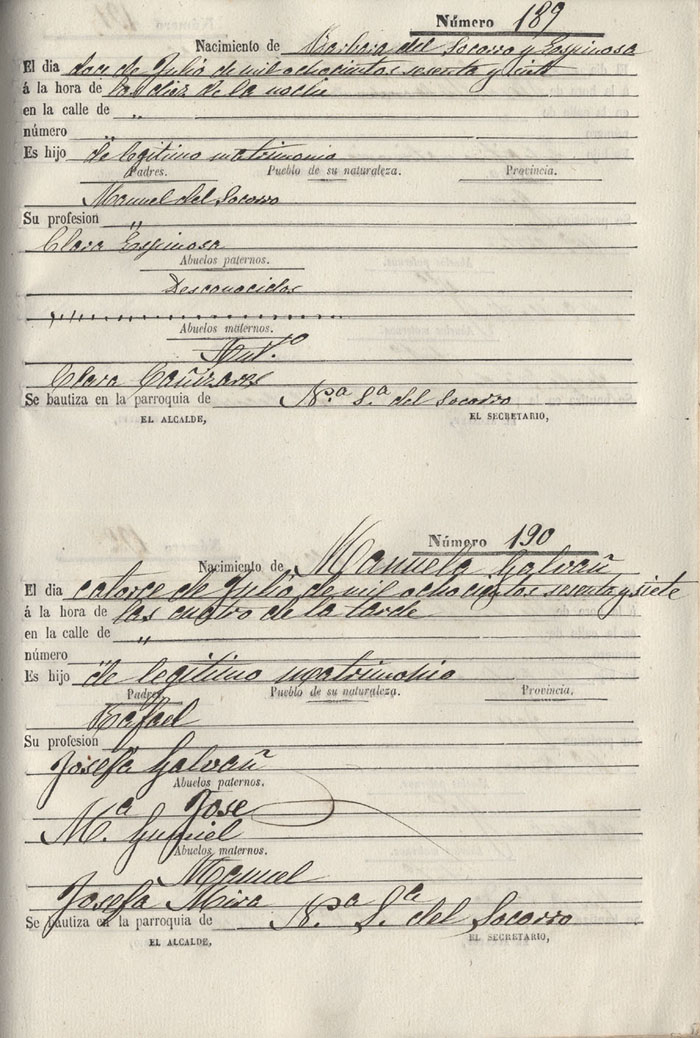 Número 189
Nacimiento de Barbara del Socorro y Espinosa
El dia doce de Julio de mil ochocientos sesenta y siete
á la hora de las diez de la noche
en la calle de "
número
Es hijo de legitimo matrimonio
Padres. Pueblo de su naturaleza. Provincia.
Manuel del Socorro
Su profesion "
Clara Espinosa
Abuelos paternos.
Desconocidos
Abuelos maternos.
Ant.º
Clara Cañizares
Se bautiza en la parroquia de N.ª S.ª del Socorro
EL ALCALDE, EL SECRETARIO,
Número 190
Nacimiento de Manuela Galvañ
El dia catorce de Julio de mil ochocientos sesenta y siete
á la hora de las cuatro de la tarde
en la calle de "
número "
Es hijo de legitimo matrimonio
Padres. Pueblo de su naturaleza. Provincia.
Rafael
Su profesion
Josefa Galvañ
Abuelos paternos.
Jose
M.ª Gumiel
Abuelos maternos.
Manuel
Josefa Mira
Se bautiza en la parroquia de N.ª S.ª del Socorro
EL ALCALDE, EL SECRETARIO,